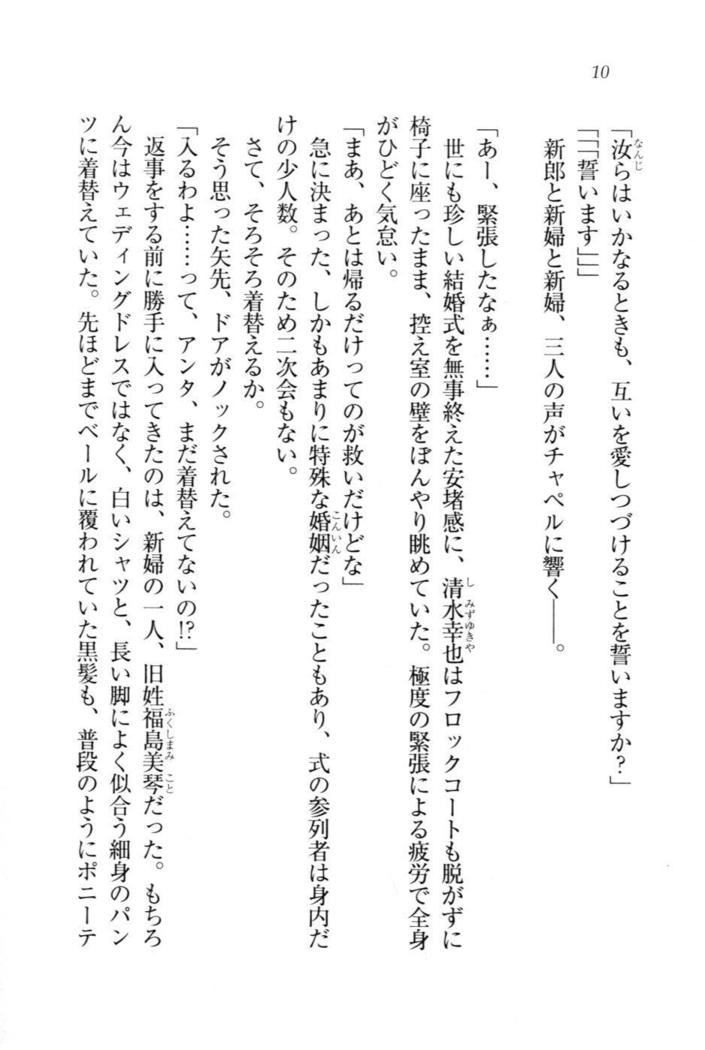 10
「汝らはいかなるときも、互いを愛しつづけることを誓いますか?」
「「「誓います」」」
新郎と新婦と新婦、三人の声がチャペルに響く――。
「あー、緊張したなぁ……」
世にも珍しい結婚式を無事終えた安堵感に、清水幸也はフロックコートも脱がずに
椅子に座ったまま、控え室の壁をぼんやり眺めていた。極度の緊張による疲労で全身
がひどく気怠い。
「まあ、あとは帰るだけってのが救いだけどな」
急に決まった、しかもあまりに特殊な婚姻だったこともあり、式の参列者は身内だ
けの少人数。そのため二次会もない。
さて、そろそろ着替えるか。
そう思った矢先、ドアがノックされた。
「入るわよ……って、アンタ、まだ着替えてないの!?」
返事をする前に勝手に入ってきたのは、新婦の一人、旧姓福島美琴だった。もちろ
ん今はウェディングドレスではなく、白いシャツと、長い脚によく似合う細身のパン
ツに着替えていた。先ほどまでベールに覆われていた黒髪も、普段のようにポニーテ